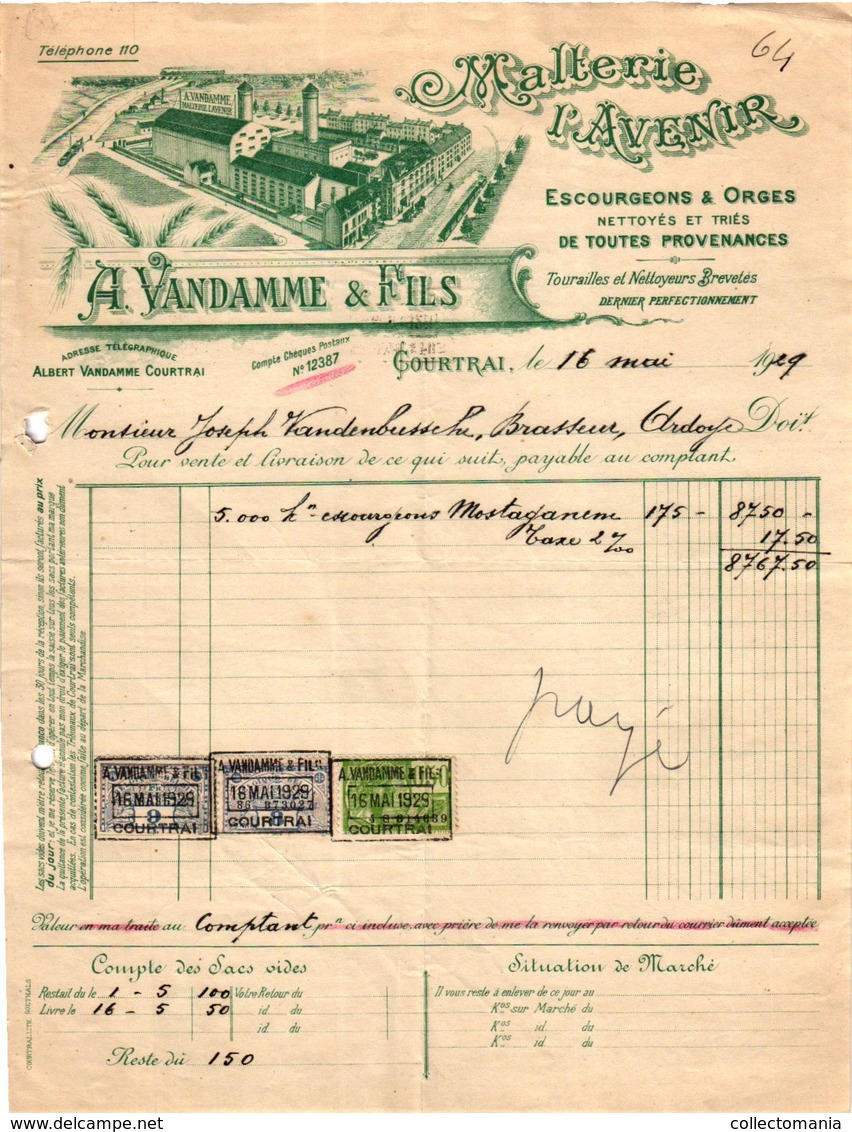 Téléphone 110
64
A. VANDAMME
MALTERIE L'AVENIR
Malterie
l'Avenir
ESCOURGEONS & ORGES
NETTOYÉS ET TRIÉS
DE TOUTES PROVENANCES
Tourailles et Nettoyeurs Brevetés
DERNIER PERFECTIONNEMENT
A. VANDAMME & FILS
ADRESSE TÉLÉGRAPHIQUE
ALBERT VANDAMME COURTRAI
Compte Chèques Postaux
No 12387
COURTRAI, le 16 mai 1929
Monsieur Joseph Vandenbussche, Brasseur, Ardoye Doit
Pour vente et livraison de ce qui suit, payable au comptant.
5.000 kos escourgeons Mostaganem 175 - 8750 -
Taxe 2 ‰ 17.50
8767.50
payé
Les sacs vides doivent m'être retournés franco dans les 30 jours de la réception, sinon ils seront facturés au prix
du jour; et je me réserve le droit d'opérer en tout temps la saisie sur tous les sacs portant ma marque
La quittance de la présente facture n'annule pas mon droit d'exiger le paiement des factures antérieures non dûment
acquittées. En cas de contestation les Tribunaux de Courtrai sont seuls compétents.
L'opération est considérée comme faite au départ de la Marchandise
A. VANDAMME & FILS
16 MAI 1929
COURTRAI
9
A. VANDAMME & FILS
16 MAI 1929
COURTRAI
8
A. VANDAMME & FILS
16 MAI 1929
COURTRAI
Valeur en ma traite au Comptant prn ci incluse, avec prière de me la renvoyer par retour du courrier dûment acceptée
Compte des Sacs vides
Restait dû le 1 - 5 100 Votre Retour du
Livré le 16 - 5 50 id. du
id. du
Reste dû 150
Situation de Marché
Il vous reste à enlever de ce jour au
Kos sur Marché du
Kos id. du
Kos id. du
COURTRAI, LITH. SOETHALS
collectomania.com